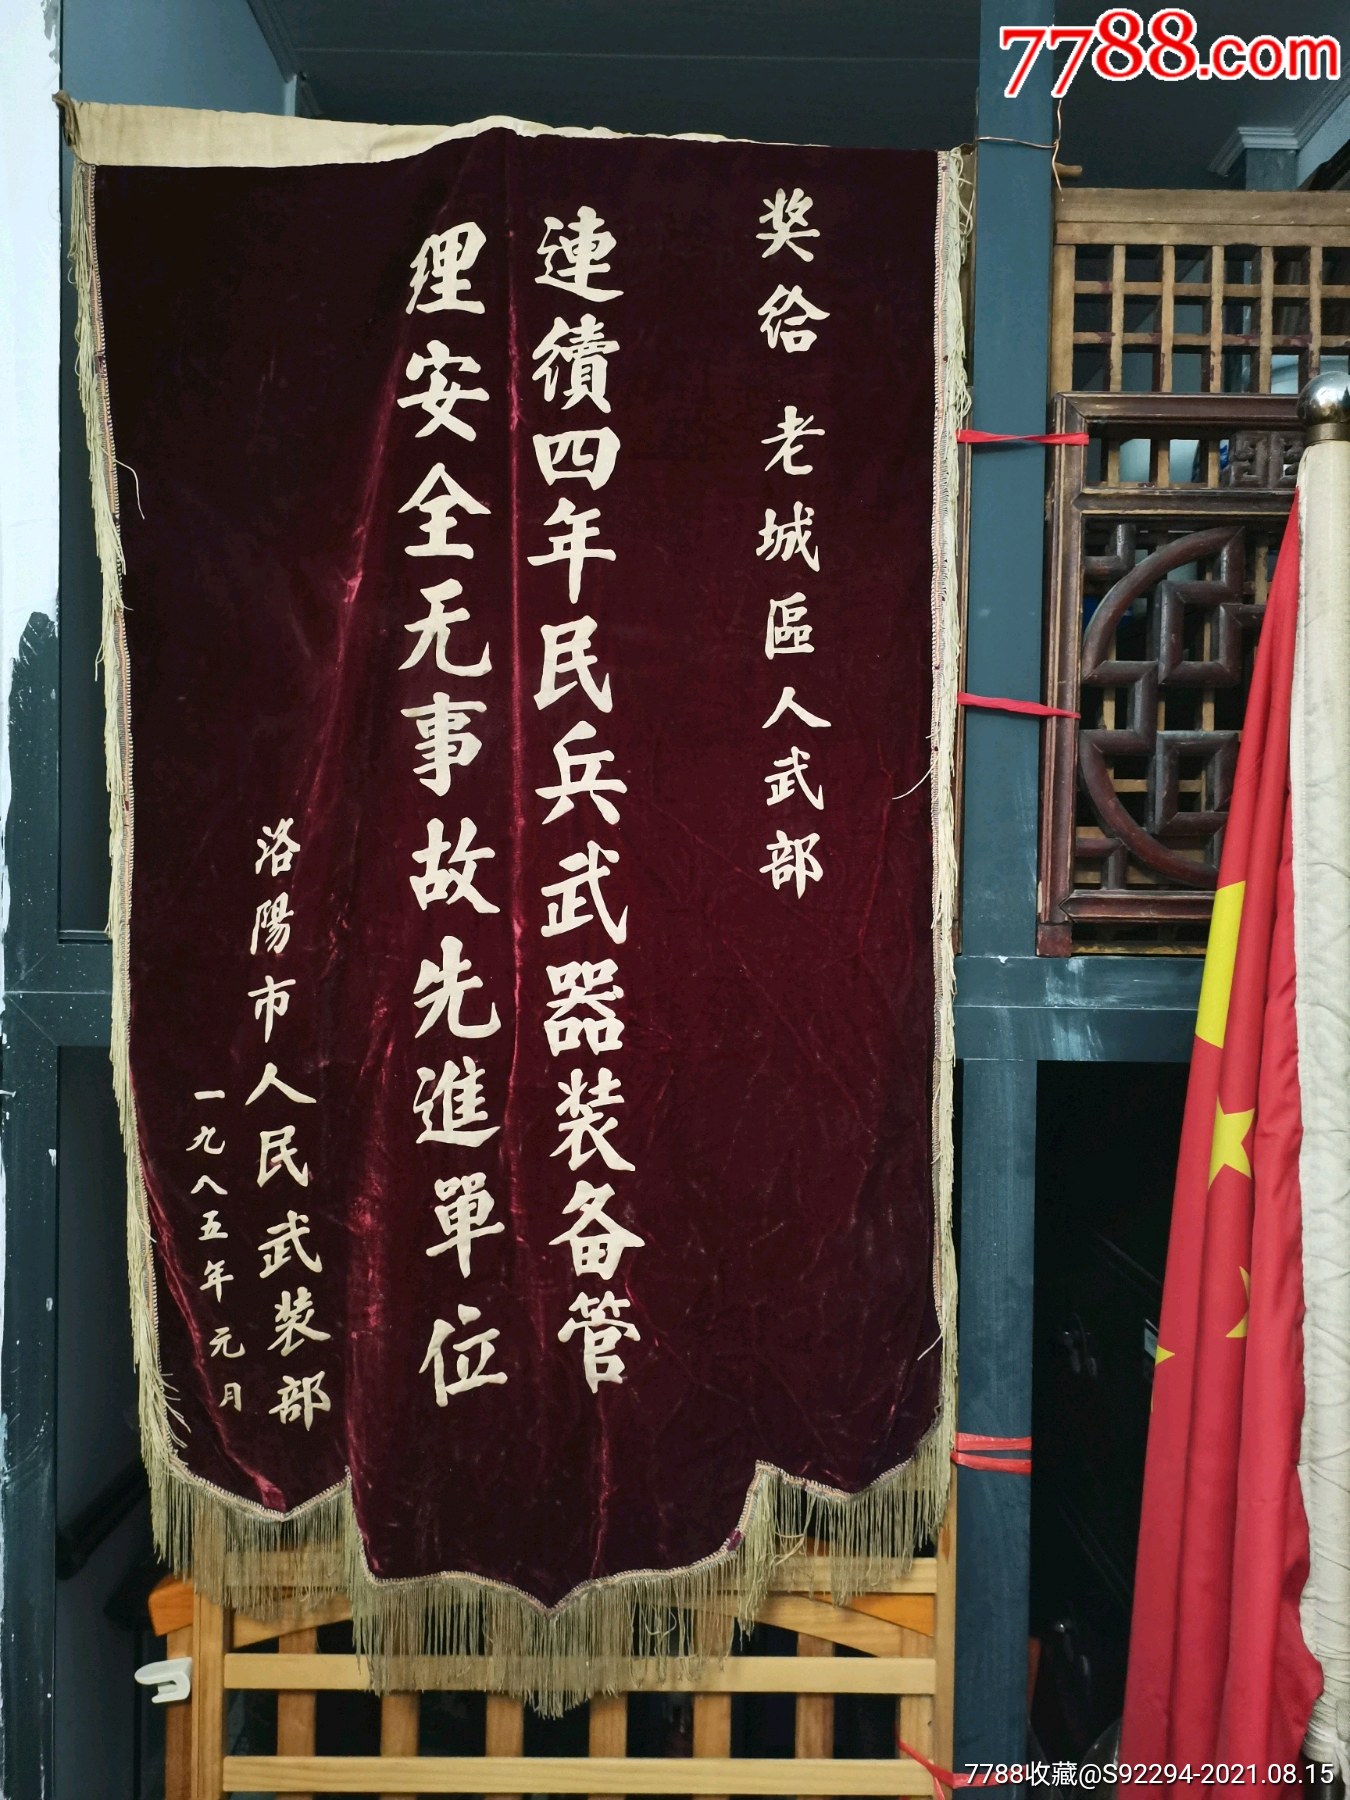 7788.com
奖给 老城區人武部
連續四年民兵武器装备管
理安全无事故先進單位
洛陽市人民武装部
一九八五年元月
7788收藏@S92294-2021.08.15